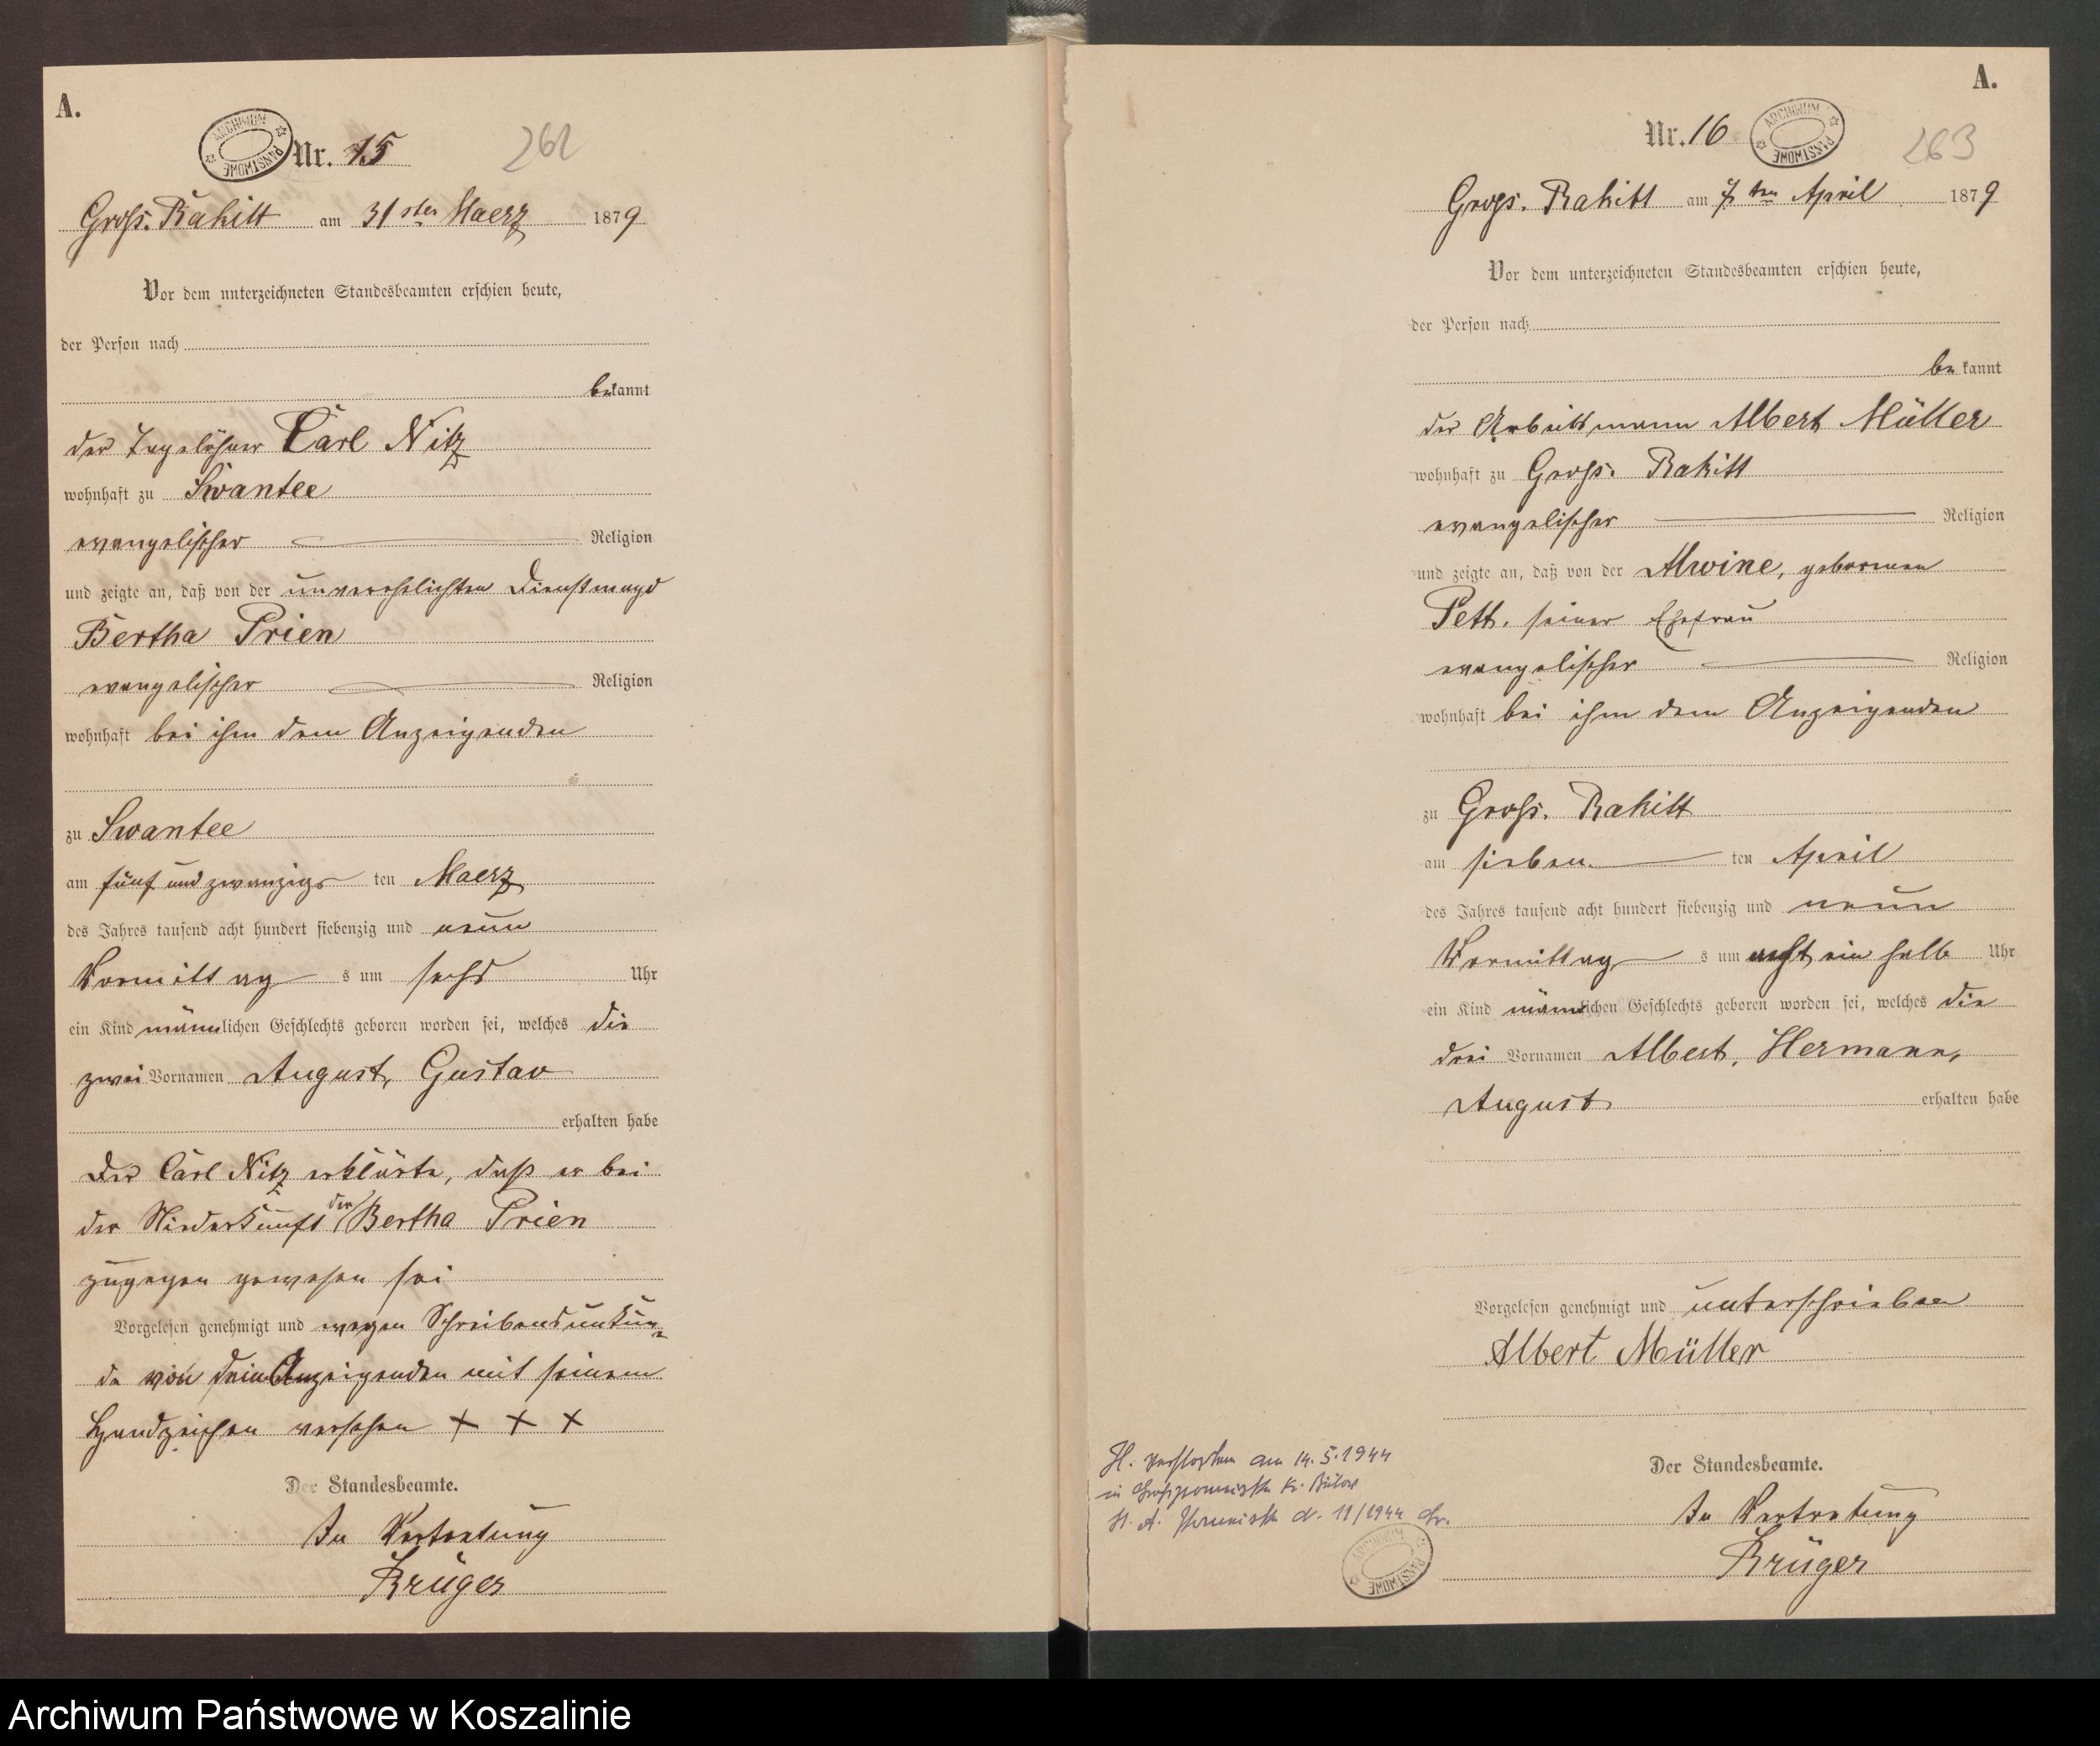 A.
ARCHIWUM PAŃSTWOWE
Nr. 15
262
Gross. Rakitt am 31sten Maerz 1879
Vor dem unterzeichneten Standesbeamten erschien heute,
der Person nach
bekannt
der Tagelöhner Carl Nitz
wohnhaft zu Swantee
evangelischer Religion
und zeigte an, daß von der unverehelichten Dienstmagd
Bertha Prien
evangelischer Religion
wohnhaft bei ihm dem Anzeigenden
zu Swantee
am fünf und zwanzigsten Maerz
des Jahres tausend acht hundert siebenzig und neun
Vormittags um sechs Uhr
ein Kind männlichen Geschlechts geboren worden sei, welches die
zwei Vornamen August, Gustav
erhalten habe
Der Carl Nitz erklärte, daß er bei
der Niederkunft der Bertha Prien
zugegen gewesen sei
Vorgelesen genehmigt und wegen Schreibensunkun-
de von dem Anzeigenden mit seinem
Handzeichen versehen + + +
Der Standesbeamte.
In Vertretung
Krüger
A.
Nr. 16
ARCHIWUM PAŃSTWOWE
263
Gross. Rakitt am 7ten April 1879
Vor dem unterzeichneten Standesbeamten erschien heute,
der Person nach
bekannt
der Arbeitsmann Albert Müller
wohnhaft zu Gross. Rakitt
evangelischer Religion
und zeigte an, daß von der Alwine, geborenen
Pett. seiner Ehefrau
evangelischer Religion
wohnhaft bei ihm dem Anzeigenden
zu Gross. Rakitt
am siebenten April
des Jahres tausend acht hundert siebenzig und neun
Vormittags um acht ein halb Uhr
ein Kind männlichen Geschlechts geboren worden sei, welches die
drei Vornamen Albert, Hermann,
August erhalten habe
Vorgelesen genehmigt und unterschrieben
Albert Müller
Der Standesbeamte.
In Vertretung
Krüger
H. verstorben am 14.5.1944
in Kr. Bütow
St. A. 11/1944
ARCHIWUM PAŃSTWOWE
Archiwum Państwowe w Koszalinie